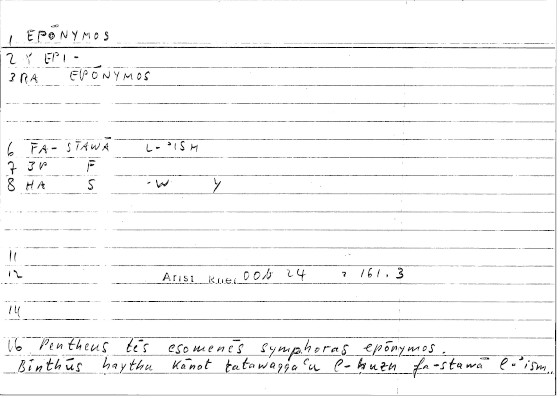 1 EPŌNYMOS
2 Y EPI -
3 RA EPŌNYMOS
6 FA-STAWĀ L-ʾISM
7 3V F
8 HA S -W Y
11
12 Arist. Rhet 00b 24 161.3
14
16 Pentheus tēs esomenēs symphoras epōnymos.
Binthūs haythu kānat tatawaqqaʿu l-ḥuzn fa-stawā l-ʾism..